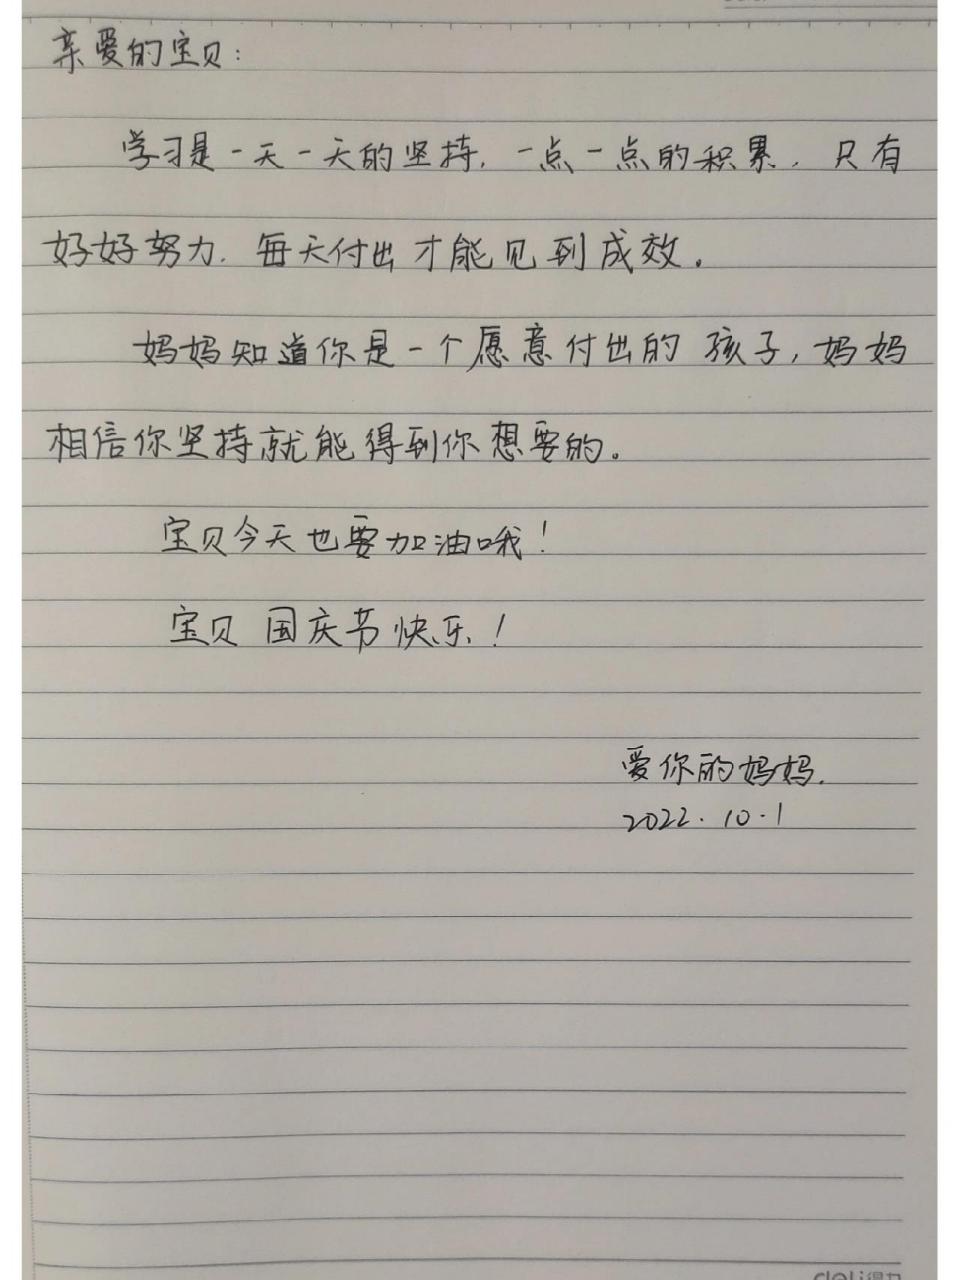 亲爱的宝贝:
学习是一天一天的坚持,一点一点的积累,只有
好好努力,每天付出才能见到成效。
妈妈知道你是一个愿意付出的孩子,妈妈
相信你坚持就能得到你想要的。
宝贝今天也要加油哦!
宝贝国庆节快乐!
爱你的妈妈.
2022.10.1
deli得力